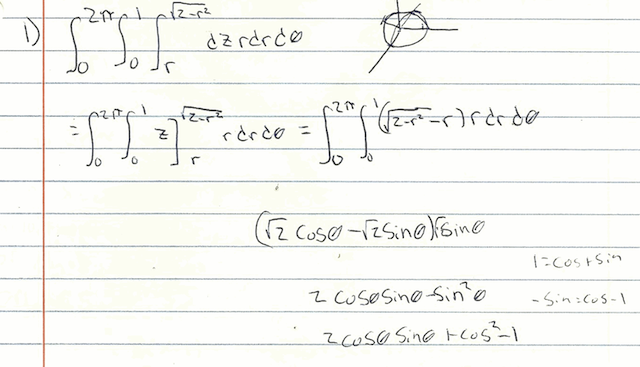 1) ∫₀^{2π} ∫₀^1 ∫_r^{√(2-r²)} dz r dr dθ
= ∫₀^{2π} ∫₀^1 z]_r^{√(2-r²)} r dr dθ = ∫₀^{2π} ∫₀^1 (√(2-r²) - r) r dr dθ
(√2 cosθ - √2 sinθ) √ sinθ
1 = cos + sin
2 cosθ sinθ - sin²θ
- sin = cos - 1
2 cosθ sinθ + cos² - 1